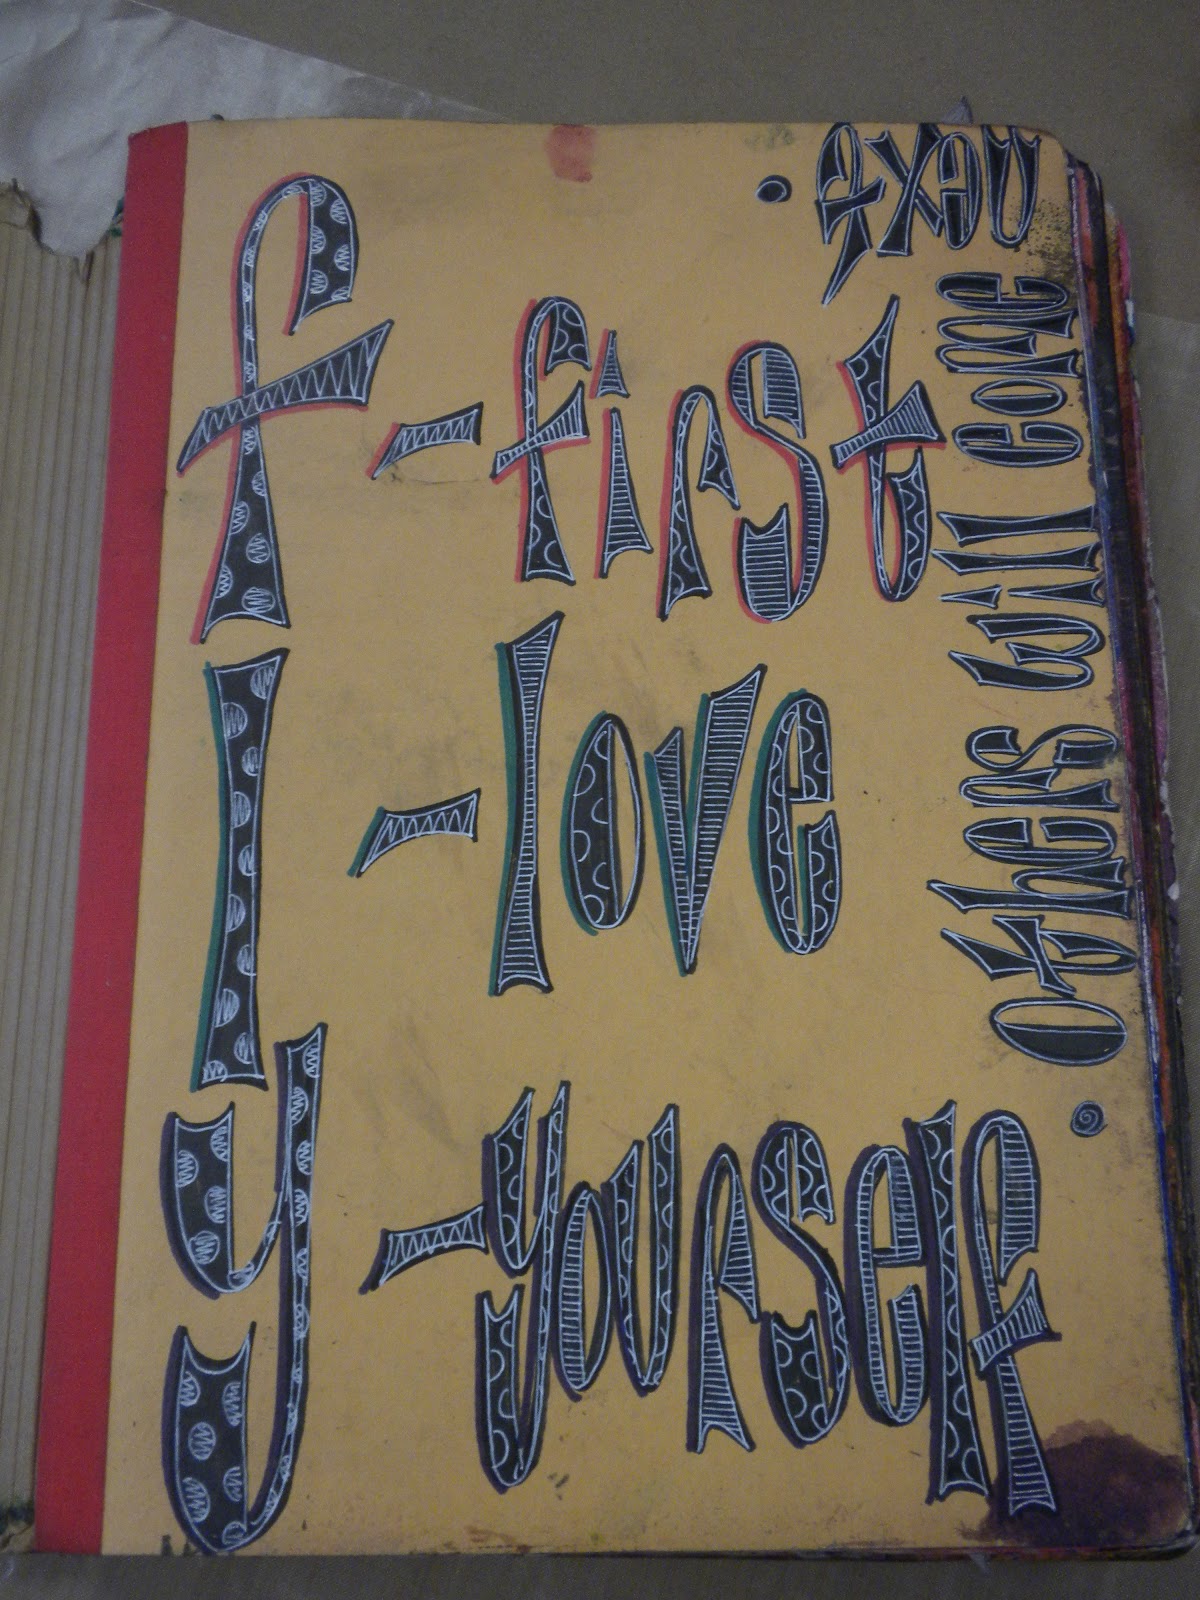 f - first
l - love
y - yourself
others will come next.